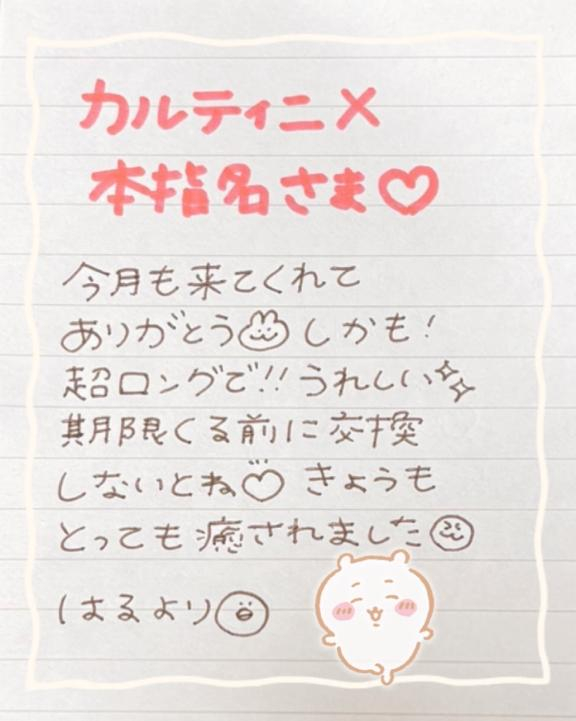 カルティニ×
本指名さま♡
今月も来てくれて
ありがとう しかも!
超ロングで!!うれしい✨
期限くる前に交換
しないとね♡ きょうも
とっても癒されました
はるより